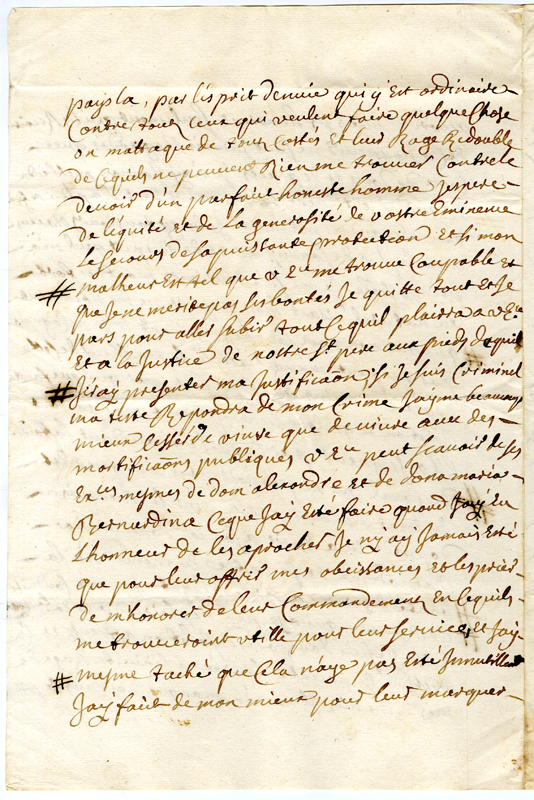 pays la, par l'esprit d'envie qui y est ordinaire
Contre tous ceux qui veulent faire quelque Chose
on m'attaque de tous Costés et leur Rage Redouble
de Cequils ne peuvent Rien me trouver Contre le
devoir d'un parfait honeste homme Jespere
de léquité et de la generosité de vostre Eminence
Le Secours de sa puissante protection Et si mon
# malheur Est tel que v Ece me trouve Coupable et
que Je ne merite pas ses bontés Je quitte tout et Je
pars pour aller subir tout Cequil plaira a v Ece
Et a la Justice de nostre St pere aux pieds duquel
# J'iray presenter ma Justificaõn, si Je suis Criminel
ma teste Repondra de mon Crime Jayme beaucoup
mieux Cesser de vivre que de vivre avec des
mortificaõns publiques v Ece peut scavoir de ses
Exces mesmes de dom alexandre et de dona maria
Bernardina Ceque Jay Esté faire quand Jay Eu
Lhonneur de les aprocher Je n'y ay Jamais Esté
que pour leur offrir mes obeissances et les prier
de m'honorer de leurs Commandemens En Cequils
me trouveroint utille pour leur service, et Jay
# mesme taché que Cela n'aye pas Esté Innutillement
Jay fait de mon mieux pour leur marquer